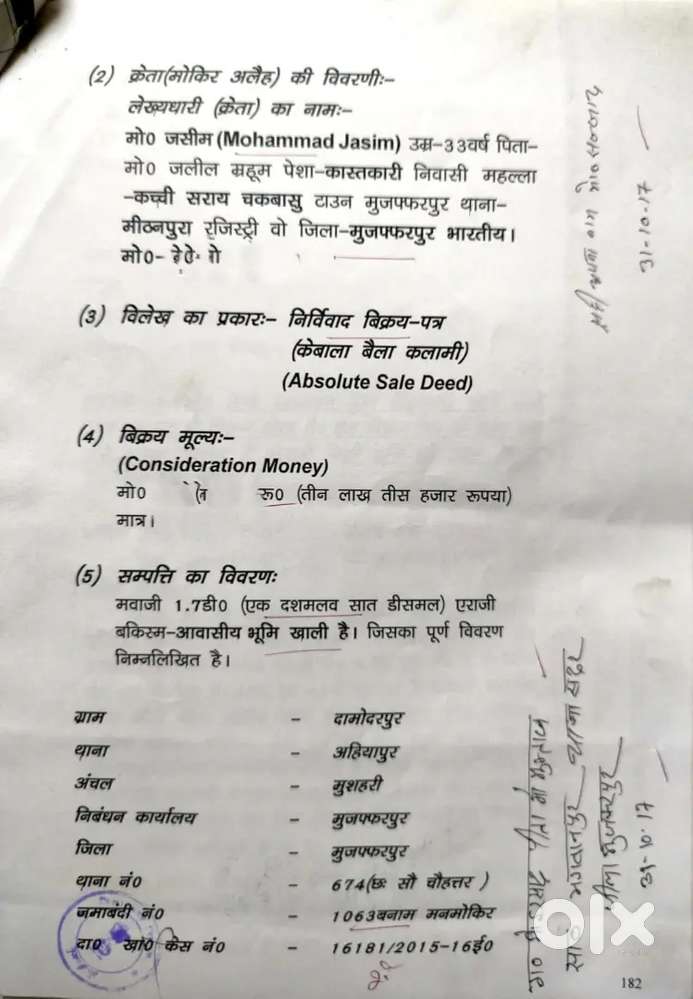 (2) क्रेता(मोकिर अलैह) की विवरणीः–
लेख्यधारी (क्रेता) का नामः–
मो0 जसीम (Mohammad Jasim) उम्र–33वर्ष पिता–
मो0 जलील म्रहूम पेशा–कास्तकारी निवासी महल्ला
–कच्ची सराय चकबासु टाउन मुजफ्फरपुर थाना–
मीठनपुरा रजिस्ट्री वो जिला–मुजफ्फरपुर भारतीय।
मो0–
(3) विलेख का प्रकारः– निर्विवाद बिक्रय–पत्र
(केबाला बैला कलामी)
(Absolute Sale Deed)
(4) बिक्रय मूल्यः–
(Consideration Money)
मो0 रू0 (तीन लाख तीस हजार रूपया)
मात्र।
(5) सम्पत्ति का विवरणः
मवाजी 1.7डी0 (एक दशमलव सात डीसमल) एराजी
बकिस्म–आवासीय भूमि खाली है। जिसका पूर्ण विवरण
निम्नलिखित है।
ग्राम – दामोदरपुर
थाना – अहियापुर
अंचल – मुशहरी
निबंधन कार्यालय – मुजफ्फरपुर
जिला – मुजफ्फरपुर
थाना नं0 – 674(छः सौ चौहत्तर )
जमाबंदी नं0 – 1063बनाम मनमोकिर
दा0 खा0 केस नं0 – 16181/2015–16ई0
182
31-10-17
थाना सदर
31-10-17
olx